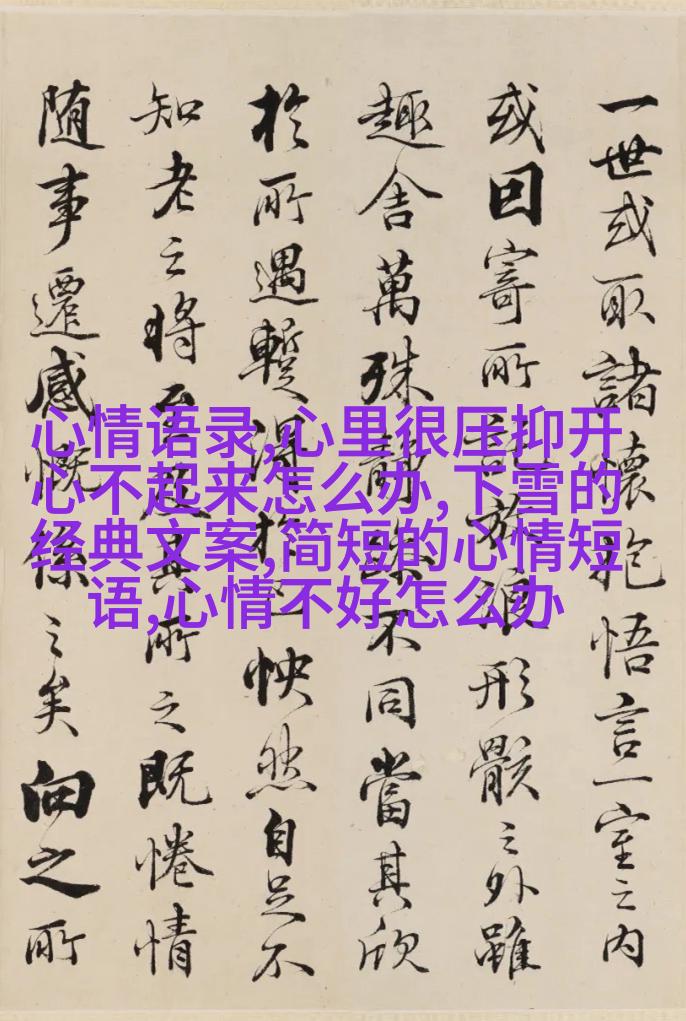 一世或取諸懷抱悟言一室之內
或因寄所託放浪形骸之外雖
趣舍萬殊靜躁不同當其欣
於所遇暫得於己怏然自足不
知老之將至及其所之既惓情
随事遷感慨係之矣向之所
心情语录,心里很压抑开
心不起来怎么办,下雪的
经典文案,简短的心情短
语,心情不好怎么办